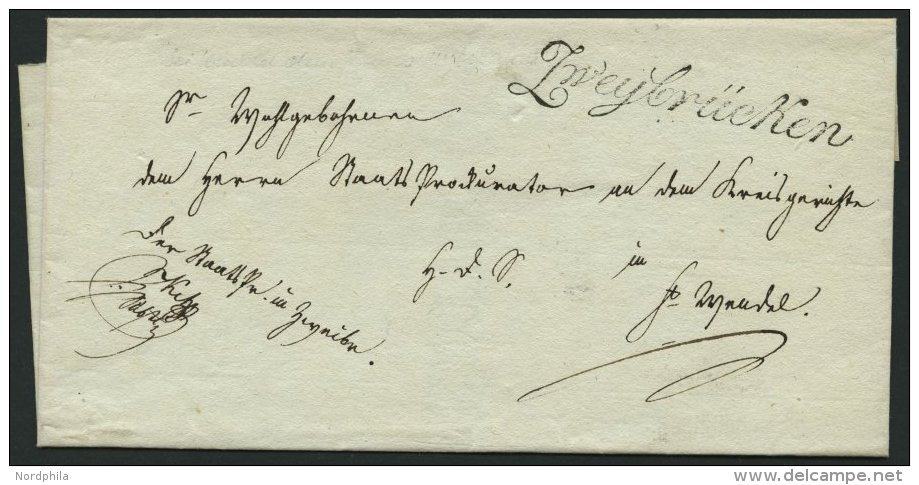 Zweybrücken
Sr Wohlgebohrnen
dem Herrn Staats Prockurator an dem Kreisgerichte
H. d. S. in
St Wendel.
Der Staatspr. in Zweibr.
Nordphila
www.delcampe.net